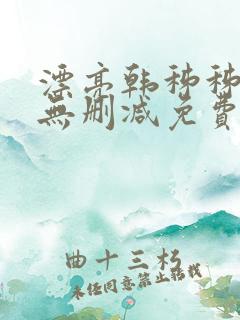 漂亮韩秭秭
無删减免費
曲十三朽
未经同意禁止转载